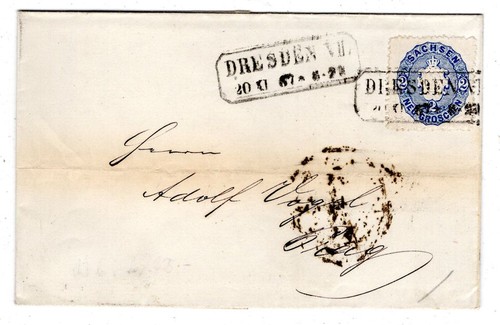 DRESDEN VII.
20 XI 67
SACHSEN
2 2
NEU-GROSCHEN
DRESDEN
Herrn
Adolf Vogel